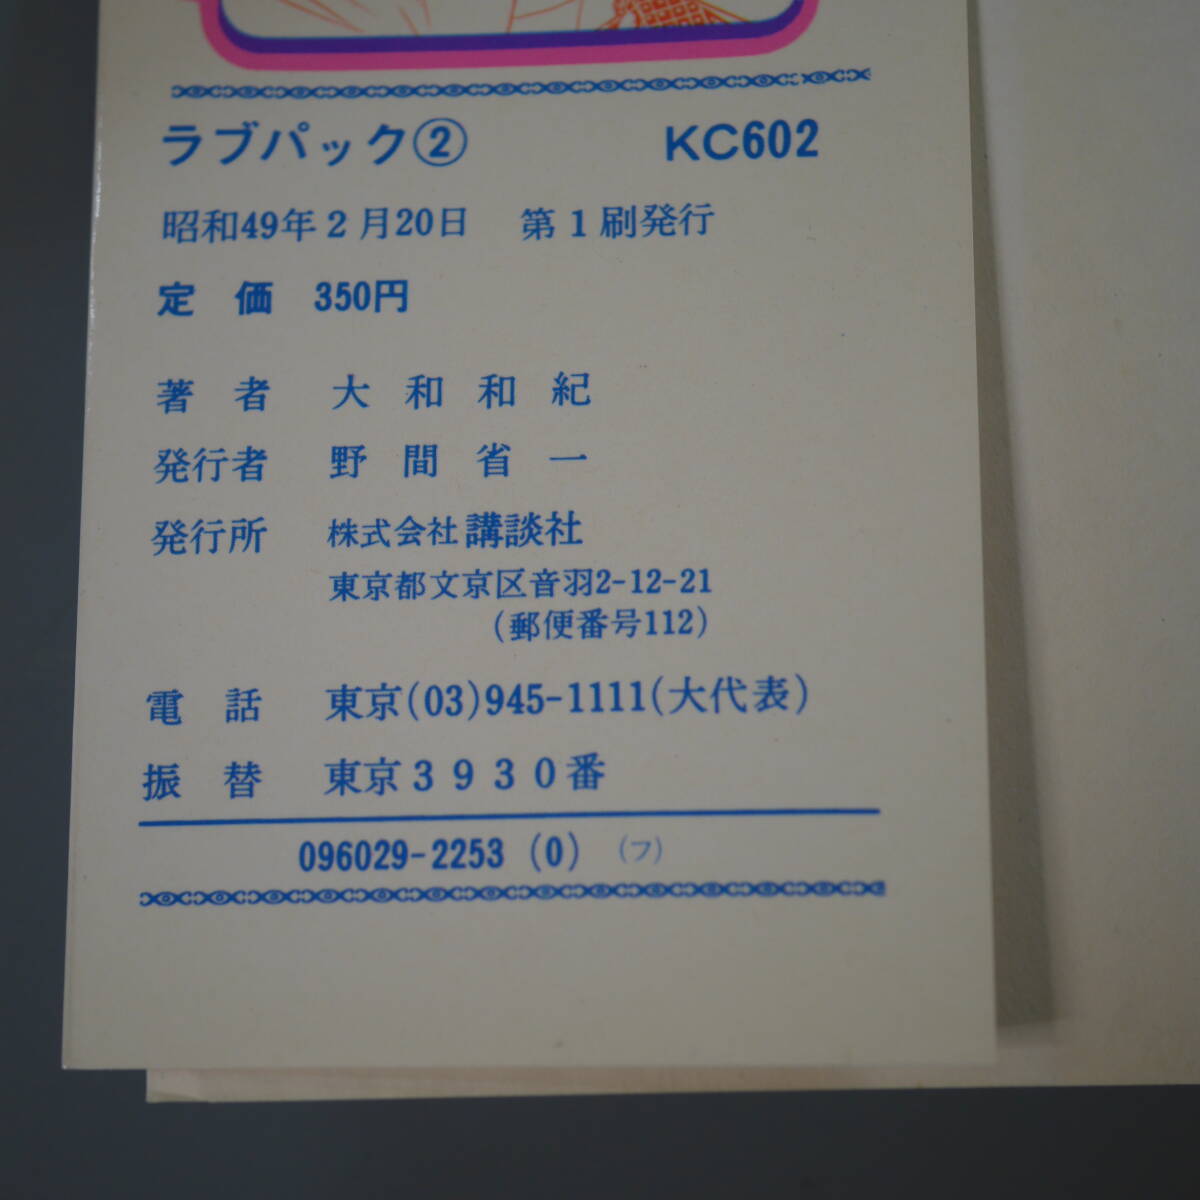 ラブパック② KC602
昭和49年2月20日 第1刷発行
定価 350円
著者 大和和紀
発行者 野間省一
発行所 株式会社 講談社
東京都文京区音羽2-12-21
(郵便番号112)
電話 東京(03)945-1111(大代表)
振替 東京3930番
096029-2253 (0) (フ)